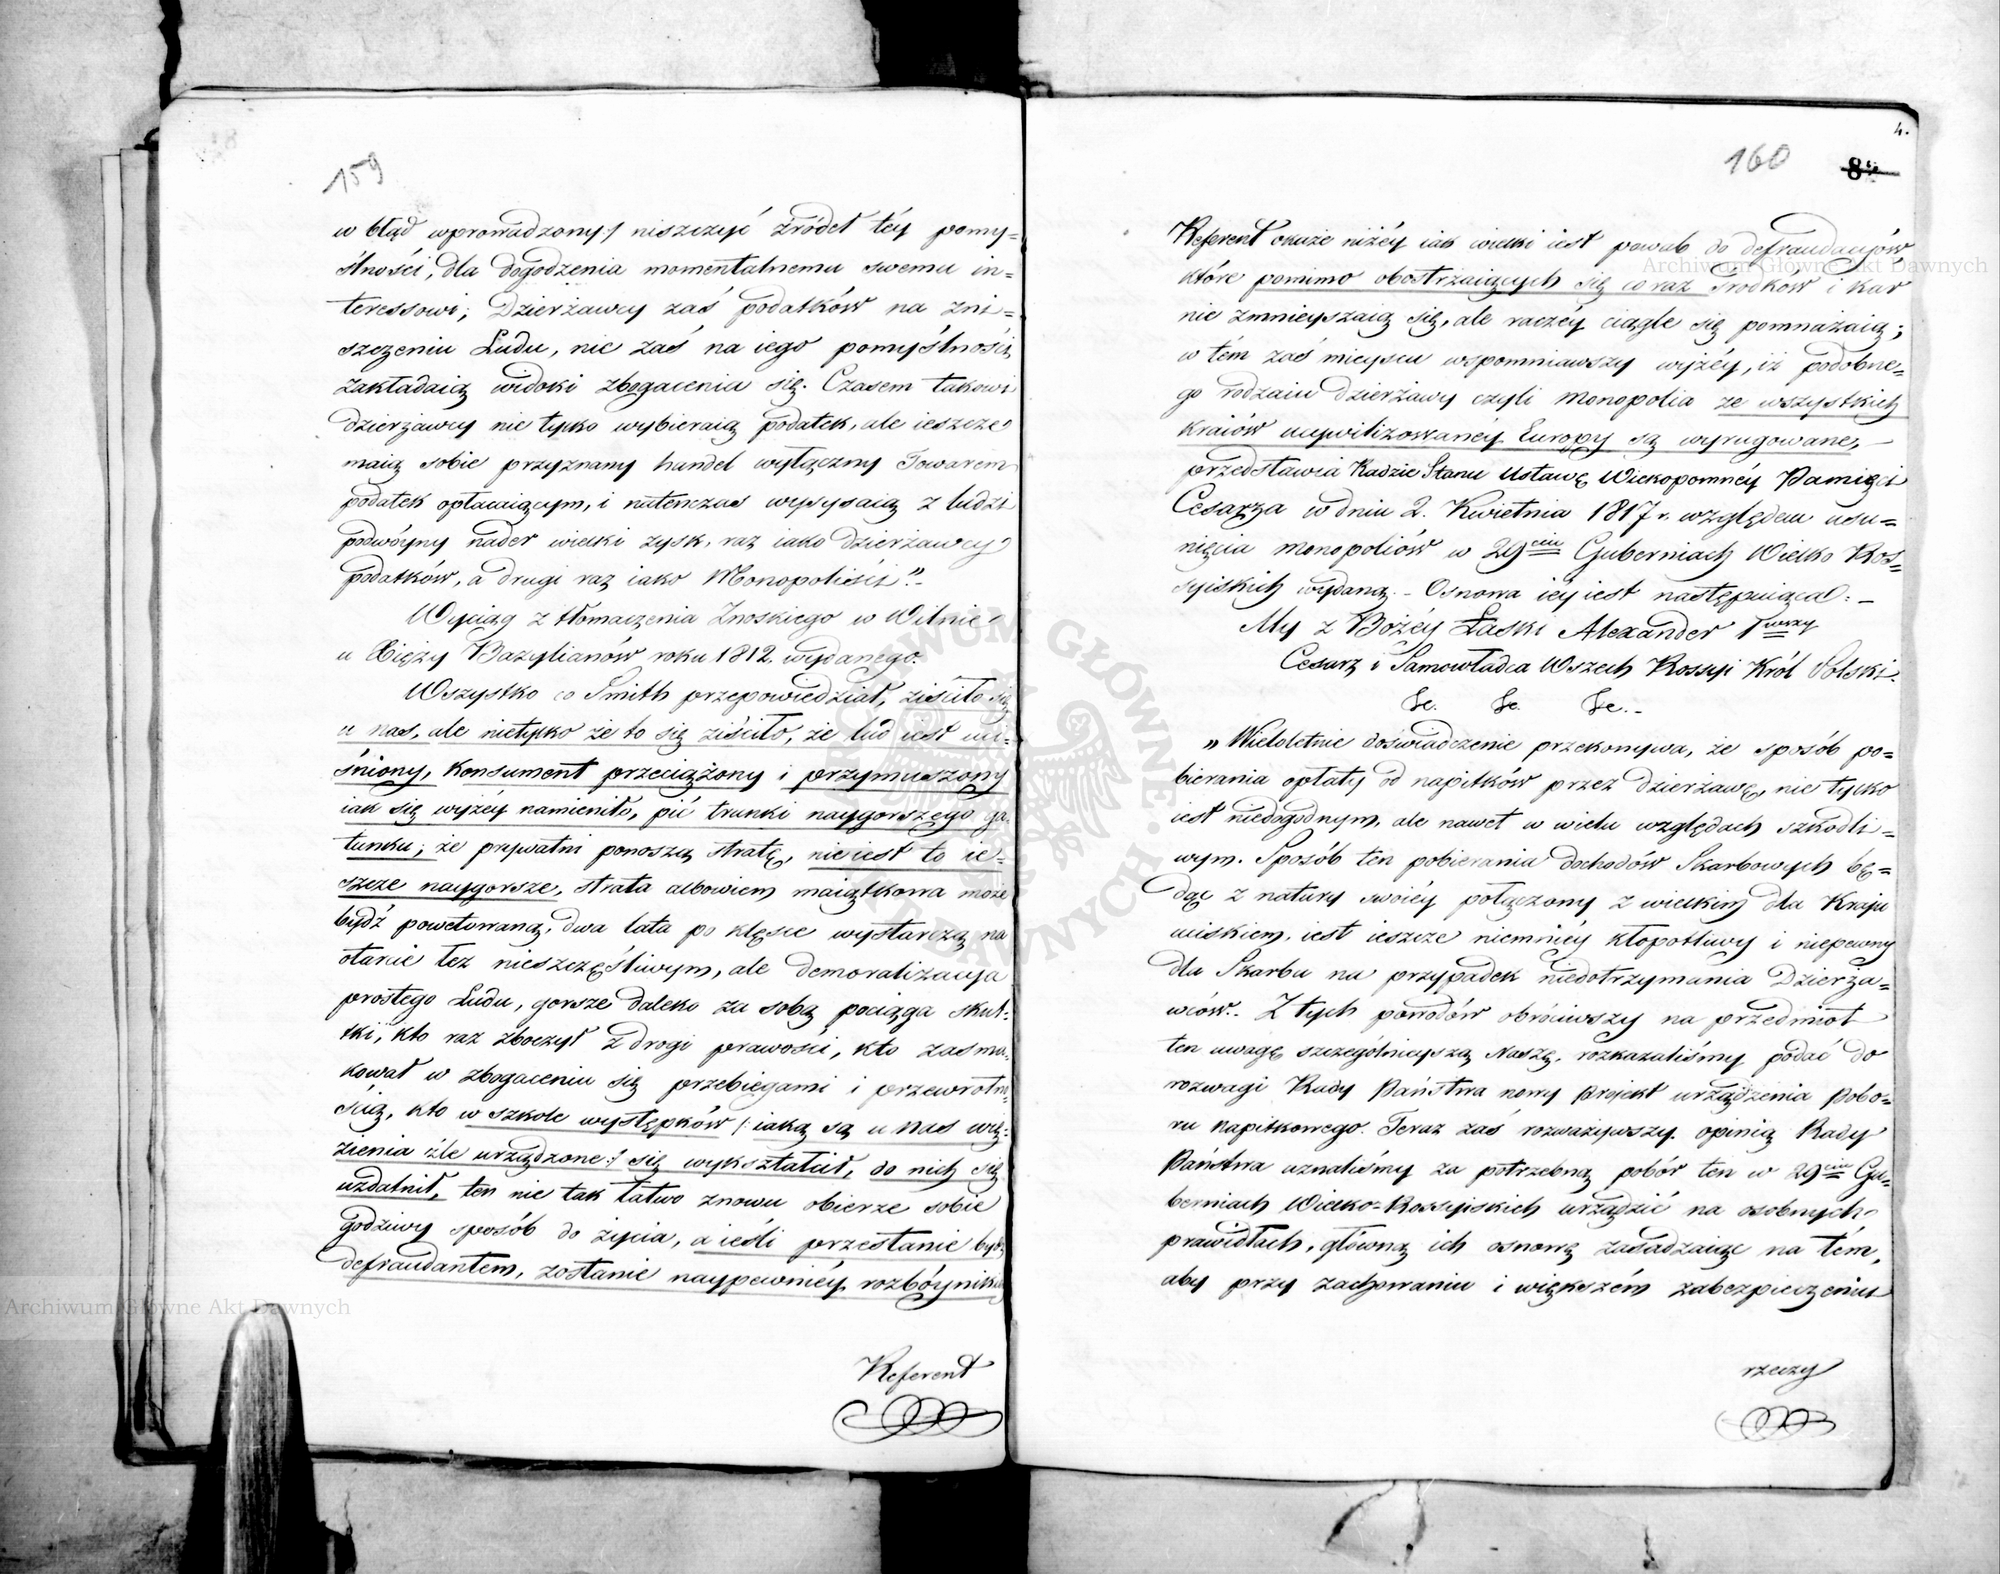 159
w błąd wprowadzony:/ niszczyć źródeł téy pomy=
ślności, dla dogodzenia momentalnemu swemu in=
teressowi; Dzierżawcy zaś podatków na zni=
szczeniu Ludu, nie zaś na iego pomyślności,
zakładaią widoki zbogacenia się. Czasem takowi
dzierżawcy nie tylko wybieraią podatek, ale ieszcze
maią sobie przyznany handel wyłączny Towarem
podatek opłacaiącym, i natenczas wysysaią z ludzi
podwóyny nader wielki zysk, raz iako dzierżawcy
podatków, a drugi raz iako Monopoliści".-
Wyciąg z tłomaczenia Znoskiego w Wilnie
u Xięży Bazylianów roku 1812. wydanego.
Wszystko co Smith przepowiedział, ziściło się
u nas, ale nietylko że to się ziściło, że lud iest uci=
śniony, konsument przeciążony i przymuszony
iak się wyżéy namieniło, pić trunki naygorszego ga=
tunku; że prywatni ponoszą stratę, nie iest to ie=
szcze naygorsze, strata albowiem maiątkowa może
bydź powetowaną, dwa lata po klęsce wystarczą na
otarcie łez nieszczęśliwym, ale demoralizacya
prostego Ludu, gorsze daleko za sobą pociąga skut=
ki, kto raz zboczył z drogi prawości, kto zasma=
kował w zbogaceniu się przebiegami i przewrotno=
ścią, kto w szkole występków /: iaką są u nas wię=
zienia źle urządzone:/ się wykształcił, do nich się
uzdatnił, ten nie tak łatwo znowu obierze sobie
godziwy sposób do życia, a ieśli przestanie bydź
defraudantem, zostanie naypewniéy rozbóynikiem
Referent
4.
160
8
Referent okaże niżéy iak wielki iest powab do defraudacyów
które pomimo obostrzaiących się coraz środków i kar
nie zmnieyszaią się, ale raczéy ciągle się pomnażaią;
w tém zaś mieyscu wspomniawszy wyżéy, iż podobne=
go rodzaiu dzierżawy czyli monopolia ze wszystkich
kraiów ucywilizowanéy Europy są wyrugowane,-
przedstawia Radzie Stanu Ustawę Wiekopomnéy Pamięci
Cesarza w dniu 2. Kwietnia 1817 r. względem usu=
nięcia monopoliów w 29ciu Guberniach Wielko Ros=
syiskich wydaną.- Osnowa iéy iest następuiąca:-
My z Bożéy Łaski Alexander 1wszy
Cesarz i Samowładca Wszech Rossyi Król Polski.
&c. &c. &c.-
„Wieloletnie doświadczenie przekonywa, że sposób po=
bierania opłaty od napitków przez dzierżawę, nie tylko
iest niedogodnym, ale nawet w wielu względach szkodli=
wym. Sposób ten pobierania dochodów Skarbowych bę=
dąc z natury swoiéy połączony z wielkim dla Kraju
uciskiem, iest ieszcze niemniéy kłopotliwy i niepewny
dla Skarbu na przypadek niedotrzymania Dzierża=
wców.- Z tych powodów obróciwszy na przedmiot
ten uwagę szczególnieyszą Naszę, rozkazaliśmy podać do
rozwagi Rady Państwa nowy projekt urządzenia pobo=
ru napitkowego. Teraz zaś rozważywszy opinią Rady
Państwa uznaliśmy za potrzebną pobór ten w 29ciu Gu=
berniach Wielko=Rossyiskich urządzić na osobnych
prawidłach, główną ich osnowę zasadzaiąc na tém,
aby przy zachowaniu i większém zabezpieczeniu
rzeczy
Archiwum Główne Akt Dawnych
Archiwum Główne Akt Dawnych